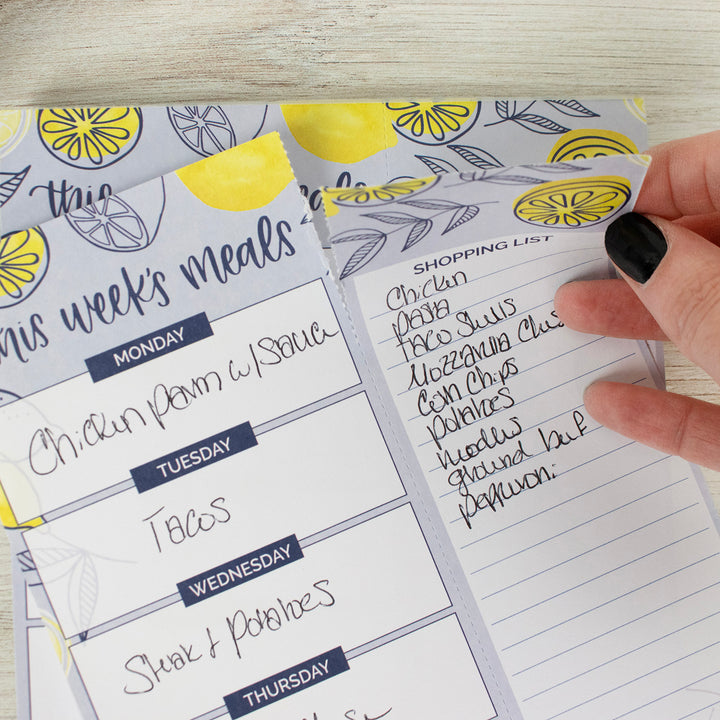 this
meals
this week's meals
MONDAY
Chicken parm w/ Sauce
TUESDAY
Tacos
WEDNESDAY
Steak + Potatoes
THURSDAY
SHOPPING LIST
Chicken
pasta
Taco Shells
Mozzarella
Corn Chips
potatoes
noodles
ground beef
pepperoni